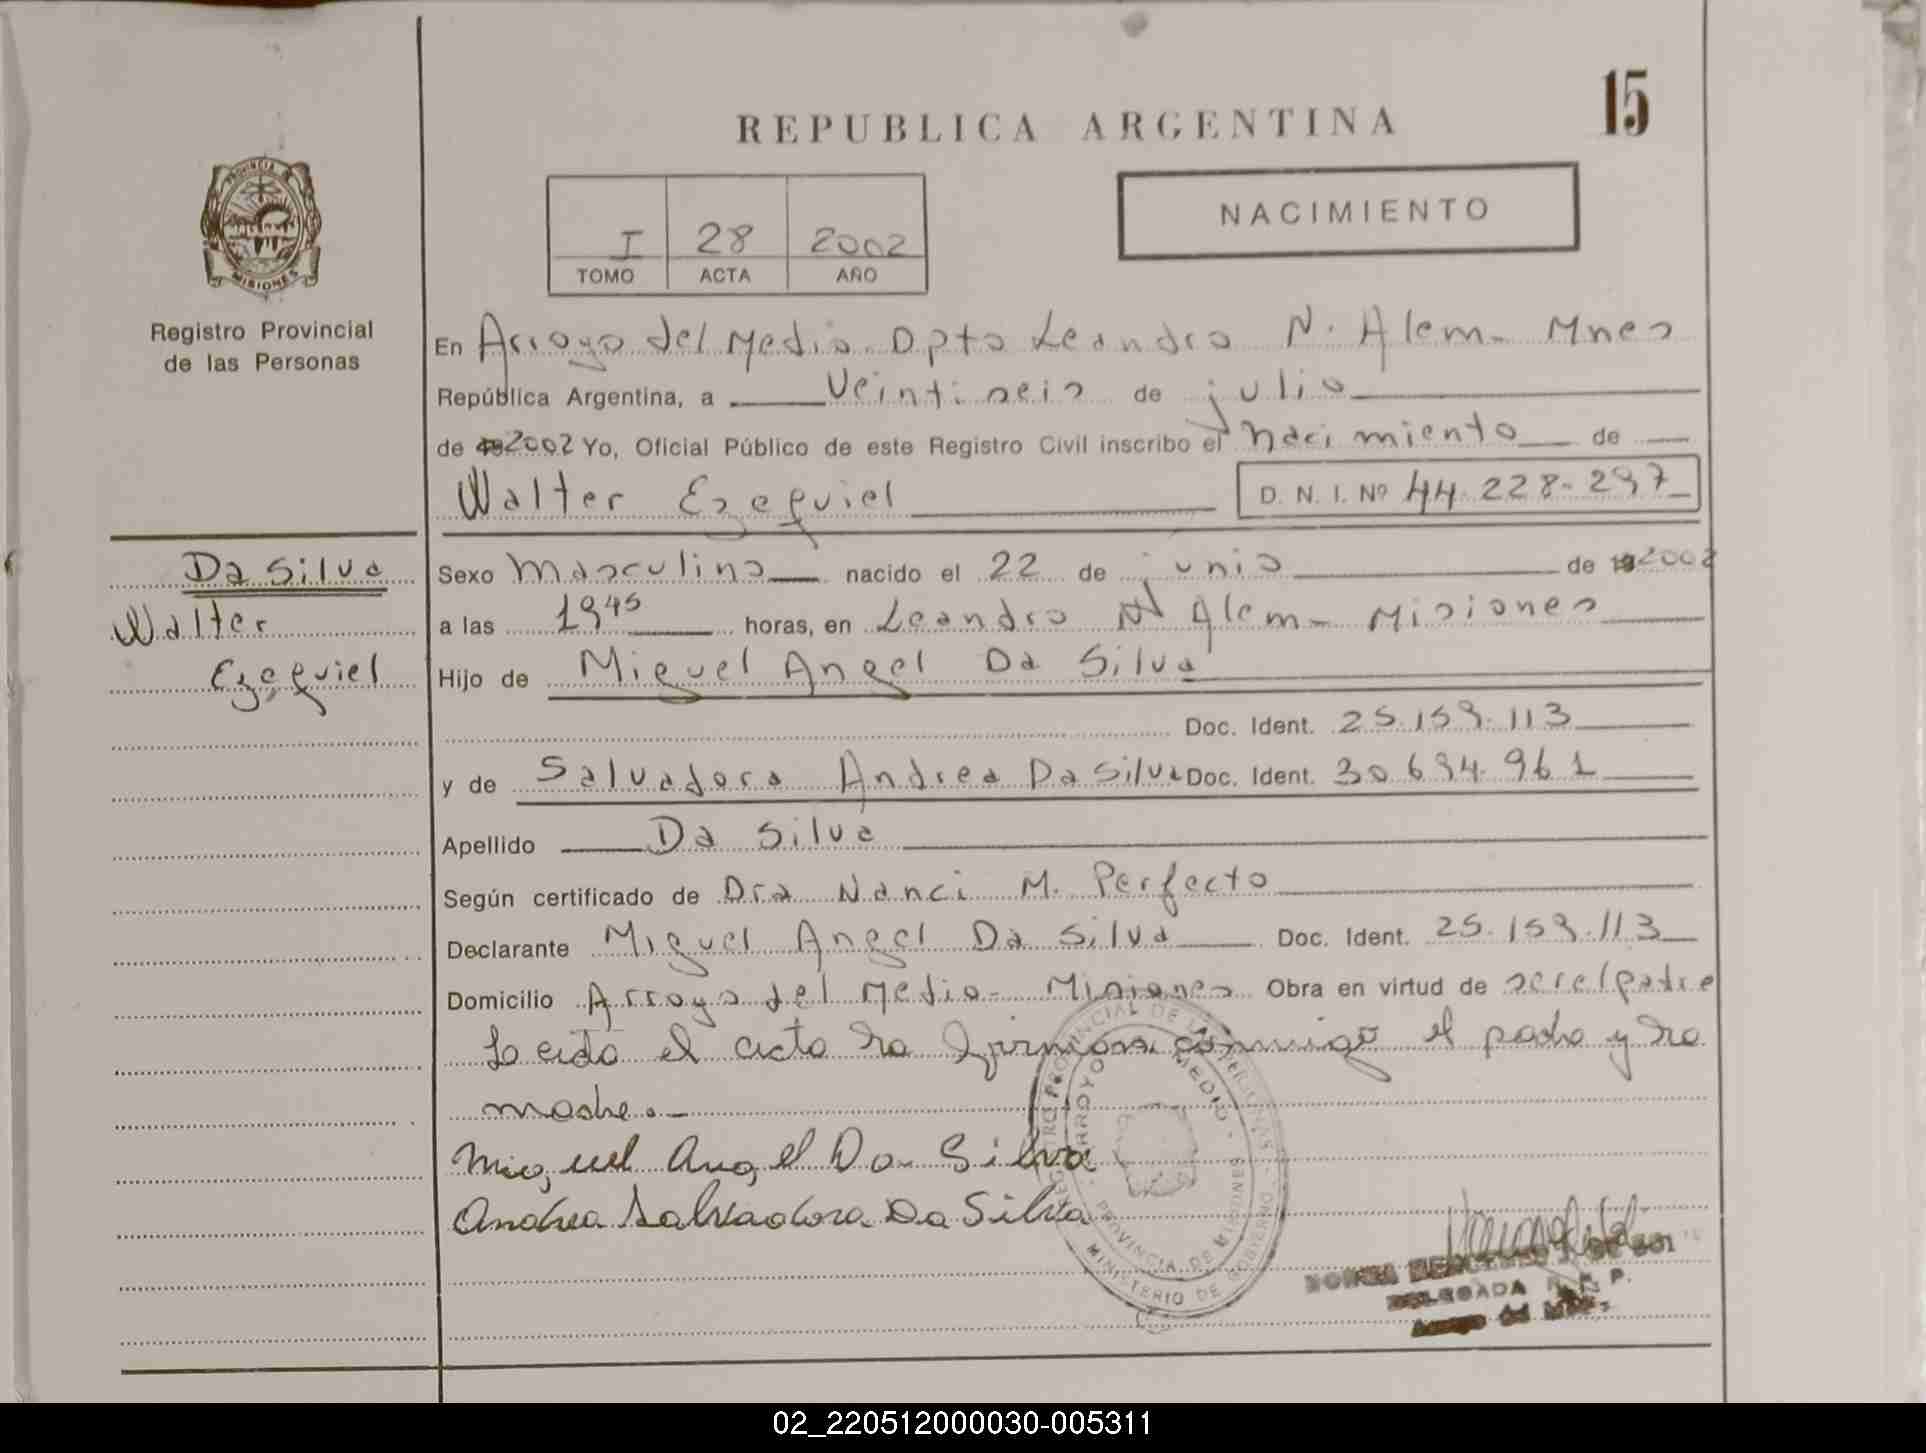 15
REPUBLICA ARGENTINA
NACIMIENTO
I 28 2002
TOMO ACTA AÑO
PROVINCIA DE
MISIONES
Registro Provincial
de las Personas
En Arroyo del Medio. Dpto Leandro N. Alem - Mnes
República Argentina, a veintiseis de julio
de 19 2002 Yo, Oficial Público de este Registro Civil inscribo el nacimiento de
Walter Ezequiel D. N. I. Nº 44.228.297
Da Silva
Walter
Ezequiel
Sexo masculino nacido el 22 de junio de 19 2002
a las 1945 horas, en Leandro N Alem - Misiones
Hijo de Miguel Angel Da Silva
Doc. Ident. 25.159.113
y de Salvadora Andrea Da Silva Doc. Ident. 30.694.961
Apellido Da Silva
Según certificado de Dra Nanci M. Perfecto
Declarante Miguel Angel Da Silva Doc. Ident. 25.159.113
Domicilio Arroyo del Medio - Misiones Obra en virtud de ser el padre
Leida el acta la firman conmigo el padre y la
madre.-
Miguel Angel Da Silva
Andrea Salvadora Da Silva
REGISTRO PROVINCIAL DE LAS PERSONAS
ARROYO DEL MEDIO - PROVINCIA DE MISIONES
MINISTERIO DE GOBIERNO
DELEGADA R. P. P.
Arroyo del Medio
02_220512000030-005311